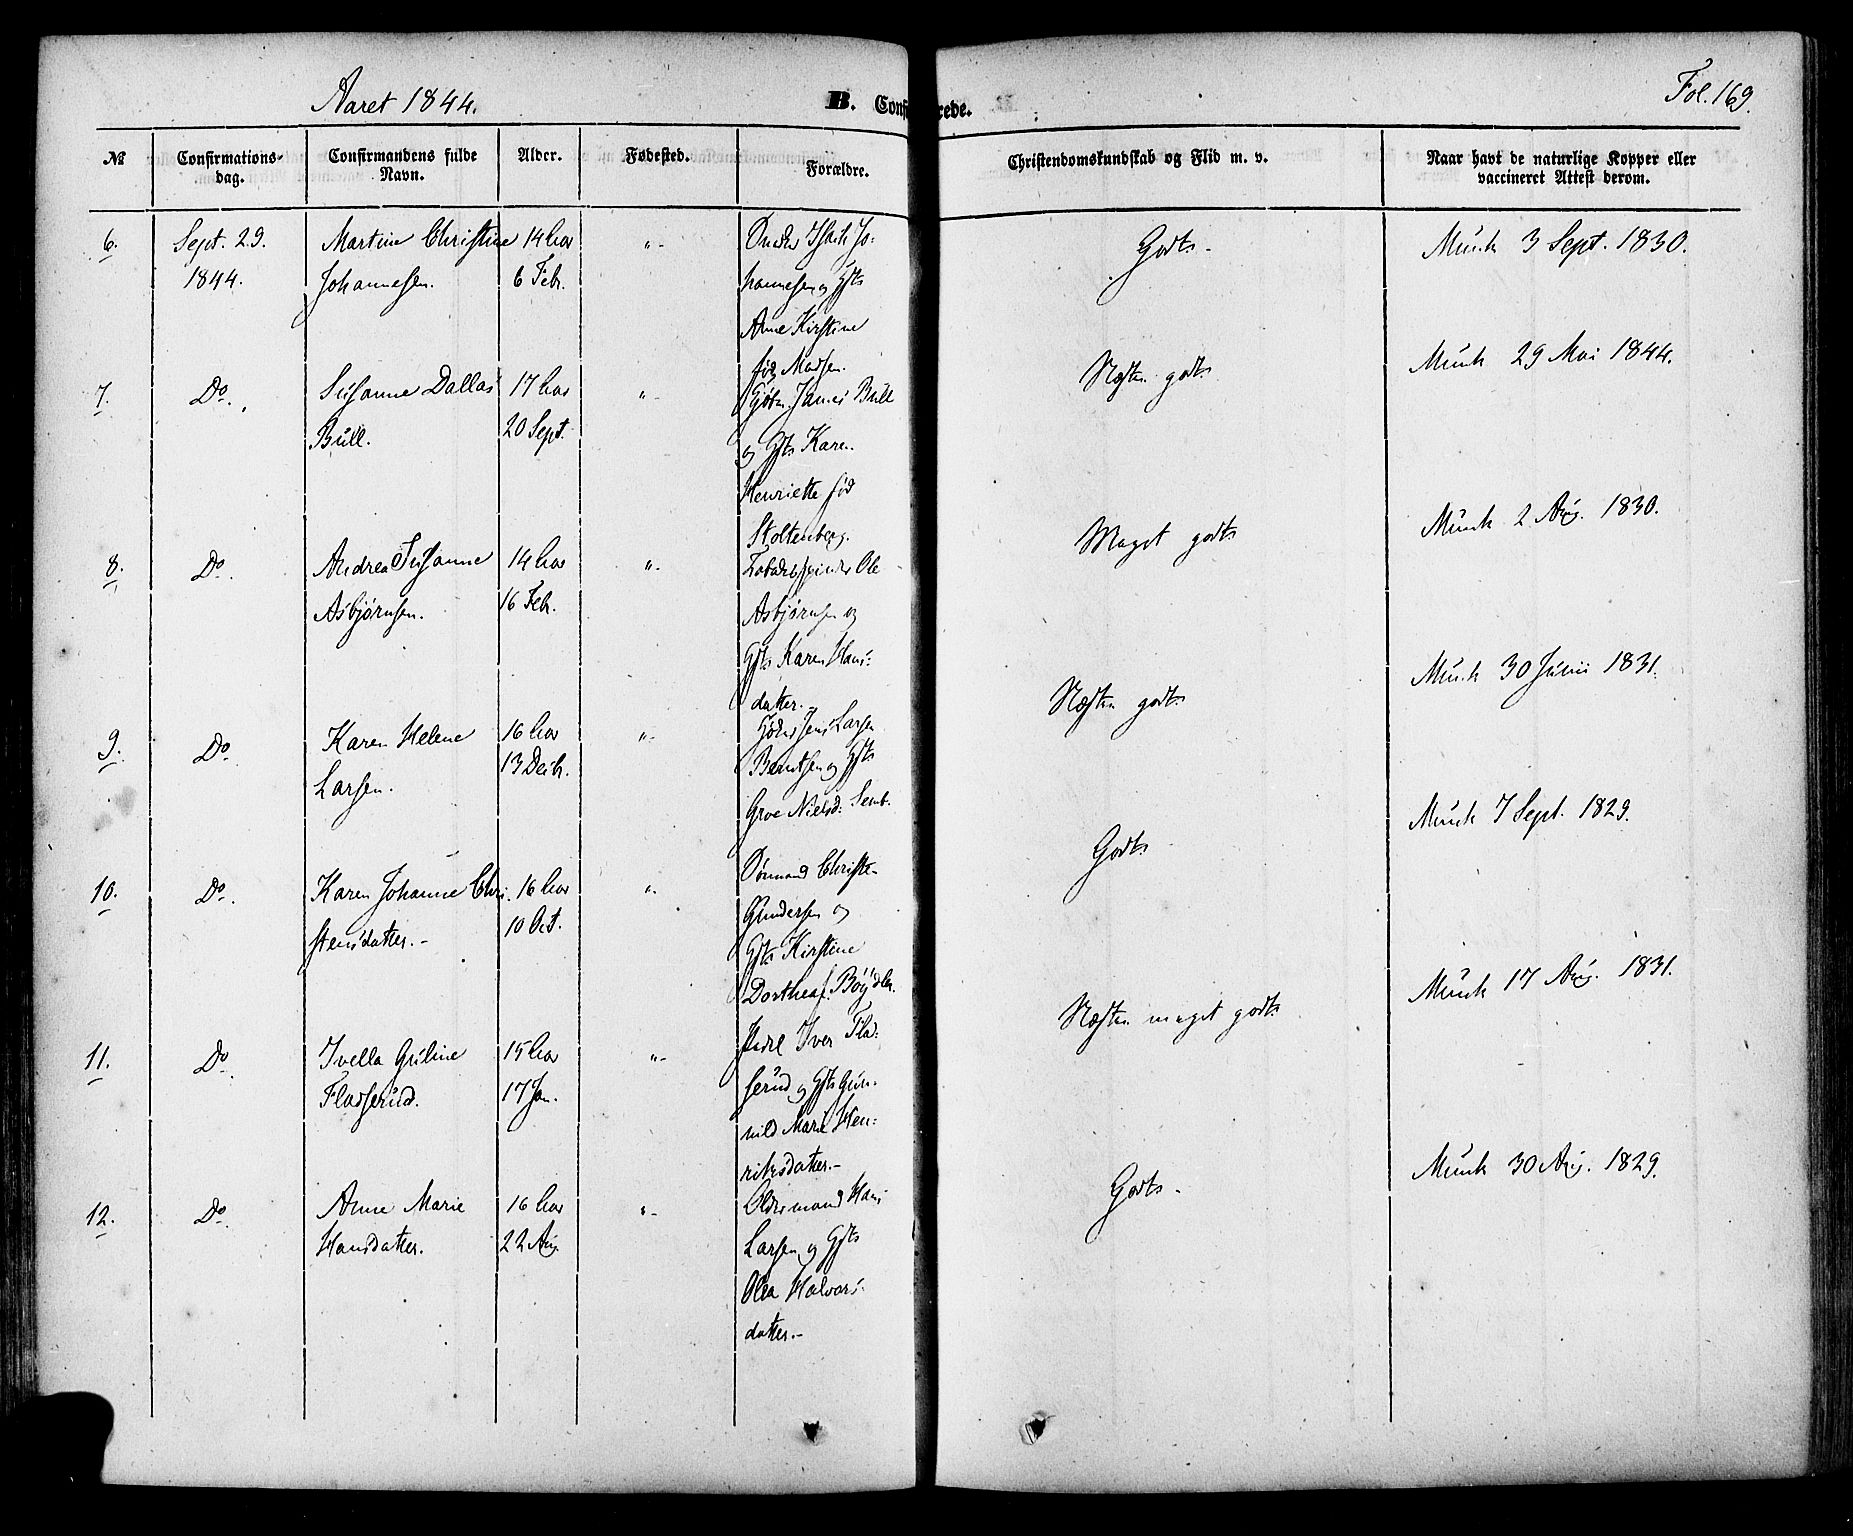 Aaret 1844.
B. Conf rede.
Fol. 169.
№
Confirmations-
dag.
Confirmandens fulde
Navn.
Alder.
Fødested.
Forældre.
Christendomskundskab og Flid m. v.
Naar havt de naturlige Kopper eller
vaccineret Attest derom.
6.
Sept. 29.
1844.
Martine Christine
Johannesen.
14 Aar
6 Feb.
"-
Jo:
hannesen og Gfts
Anne Kirstine
fød Madsen.
Godts.
Munk 3 Sept. 1830.
7.
Do.
Susanne Dallas
Bull.
17 Aar
20 Sept.
"-
James Bull
og Gfts Karen
Henriette fød
Stoltenberg.
Næsten godts
Munk 29 Mai 1844.
8.
Do.
Andrea Susanne
Asbjørnsen.
14 Aar
16 Feb.
"-
Ole
Asbjørnsen og
Gfts Karen Hans:
datter.
Meget godts
Munk 2 Aug. 1830.
9.
Do.
Karen Helene
Larsen.
16 Aar
13 Decb.
"-
Jens Larsen
Berntsen og Gfts
Groe Nielsd: Semb.
Næsten godts
Munk 30 Junii 1831.
10.
Do.
Karen Johanne Chri
stensdatter.-
16 Aar
10 Oct.
"-
Christen
Gundersen og
Gfts Kirstine
Dorthea f.
Godts
Munk 7 Sept. 1829.
11.
Do.
Ivella Guline
Fladserud.
15 Aar
17 Jan.
"-
Iver Flad:
serud og Gfts Gun-
nild Marie Hen:
riksdatter.-
Næsten meget godts
Munk 17 Aug. 1831.
12.
Do.
Anne Marie
Hansdatter.
16 Aar
22 Aug
"-
Oldermand Hans
Larsen og Gfts
Olea Halvors:
datter.-
Godts.
Munk 30 Aug. 1829.